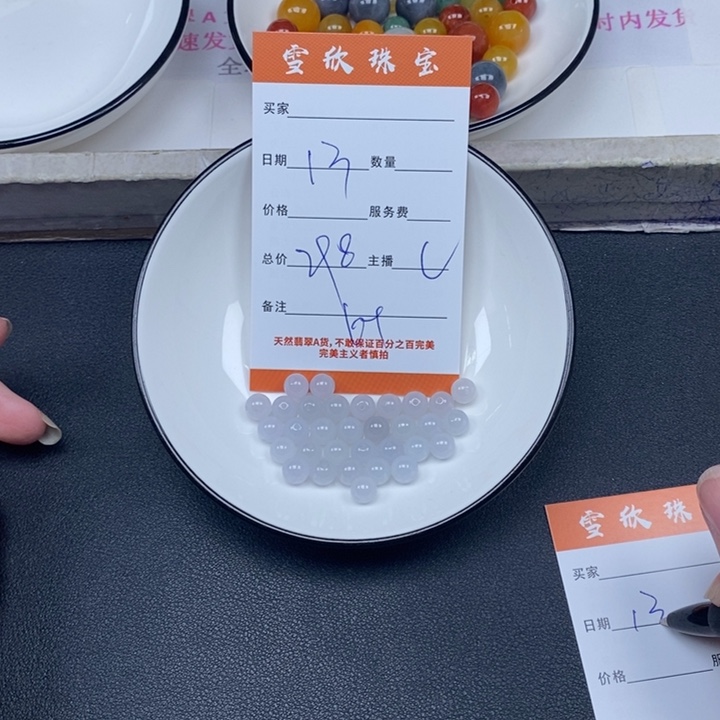 速发
时内发货
雪欣珠宝
买家
日期 13 数量
价格 服务费
总价 298 主播
备注
天然翡翠A货,不敢保证百分之百完美
完美主义者慎拍
雪欣珠
买家
日期 13
价格